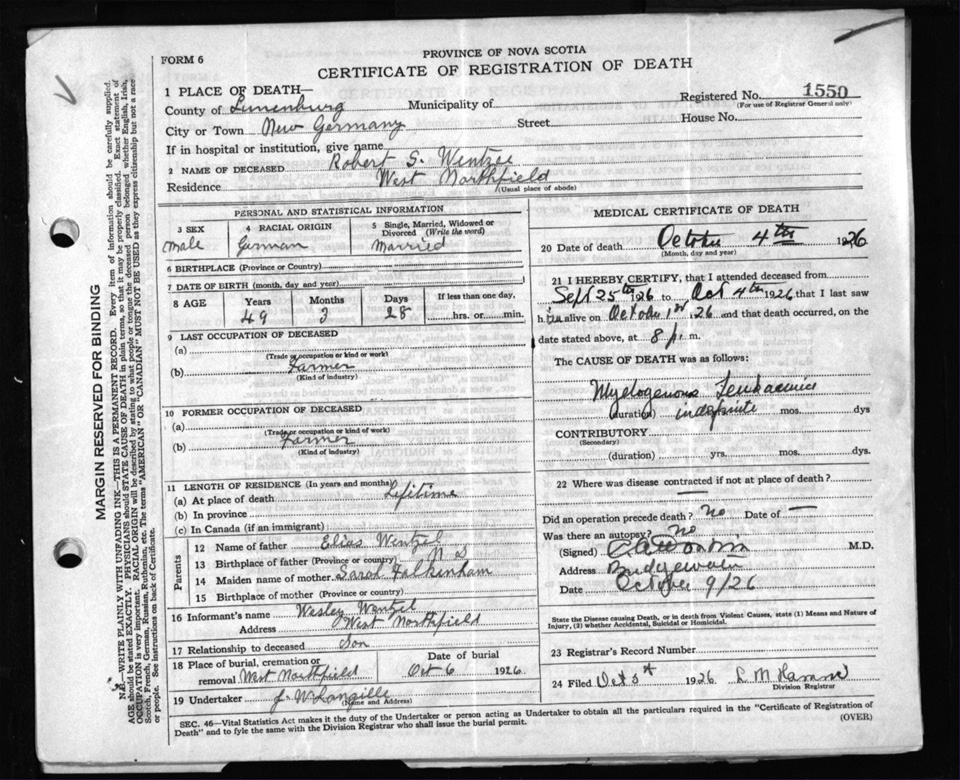 PROVINCE OF NOVA SCOTIA
FORM 6
CERTIFICATE OF REGISTRATION OF DEATH
1 PLACE OF DEATH—
Registered No. 1550
(For use of Registrar General only)
County of Lunenburg Municipality of
City or Town New Germany Street House No.
If in hospital or institution, give name
2 NAME OF DECEASED Robert S. Wentzel
Residence West Northfield
(Usual place of abode)
PERSONAL AND STATISTICAL INFORMATION
3 SEX 4 RACIAL ORIGIN 5 Single, Married, Widowed or Divorced (Write the word)
Male German Married
6 BIRTHPLACE (Province or Country)
7 DATE OF BIRTH (month, day and year)
8 AGE Years Months Days If less than one day,
49 3 28 hrs. or min.
9 LAST OCCUPATION OF DECEASED
(a)
(Trade or occupation or kind or work)
(b) Farmer
(Kind of industry)
10 FORMER OCCUPATION OF DECEASED
(a)
(Trade or occupation or kind or work)
(b) Farmer
(Kind of industry)
11 LENGTH OF RESIDENCE (In years and months)
(a) At place of death Lifetime
(b) In province
(c) In Canada (if an immigrant)
Parents
12 Name of father Elias Wentzel
13 Birthplace of father (Province or country) N S
14 Maiden name of mother Sarah Falkenham
15 Birthplace of mother (Province or country)
16 Informant's name Wesley Wenzel
Address West Northfield
17 Relationship to deceased Son
18 Place of burial, cremation or removal West Northfield
Date of burial Oct 6 1926
19 Undertaker J. W Langille
(Name and Address)
MEDICAL CERTIFICATE OF DEATH
20 Date of death October 4th 1926
(Month, day and year)
21 I HEREBY CERTIFY, that I attended deceased from
Sept 25th 1926 to Oct 4th 1926 that I last saw
him alive on October 1st 1926 and that death occurred, on the
date stated above, at 8 p. m.
The CAUSE OF DEATH was as follows:
Myelogenous Leukaemia
(duration) indefinite mos. dys
CONTRIBUTORY
(Secondary)
(duration) yrs. mos. dys.
22 Where was disease contracted if not at place of death?
—
Did an operation precede death? No Date of —
Was there an autopsy? No
(Signed) M.D.
Address Bridgewater
Date October 9/26
State the Disease causing Death, or in death from Violent Causes, state (1) Means and Nature of
Injury, (2) whether Accidental, Suicidal or Homicidal.
23 Registrar's Record Number
24 Filed Oct 5th 1926 L M
Division Registrar
SEC. 46—Vital Statistics Act makes it the duty of the Undertaker or person acting as Undertaker to obtain all the particulars required in the "Certificate of Registration of
Death" and to fyle the same with the Division Registrar who shall issue the burial permit.
(OVER)
MARGIN RESERVED FOR BINDING
N.B.—WRITE PLAINLY WITH UNFADING INK—THIS IS A PERMANENT RECORD. Every item of information should be carefully supplied.
AGE should be stated EXACTLY. PHYSICIANS should STATE CAUSE OF DEATH in plain terms, so that it may be properly classified. Exact statement of
OCCUPATION is very important. RACIAL ORIGIN will be described by stating to what people or tongue the deceased person belonged, whether English, Irish,
Scotch, French, German, Russian, Ruthenian, etc. The terms "AMERICAN" OR "CANADIAN" MUST NOT BE USED as they express citizenship but not a race
or people. See instructions on back of Certificate.